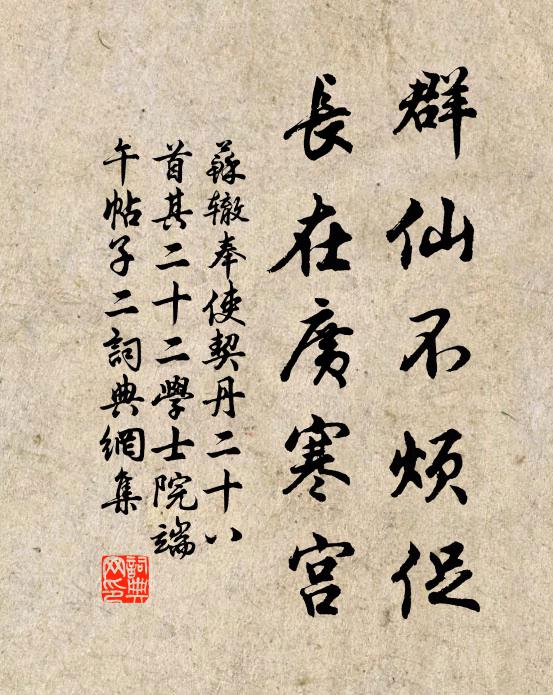 群仙不烦促
長在廣寒宮
蘇辙奉使契丹二十八
首其二十二學士院端
午帖子二詞典網集
詞典网印